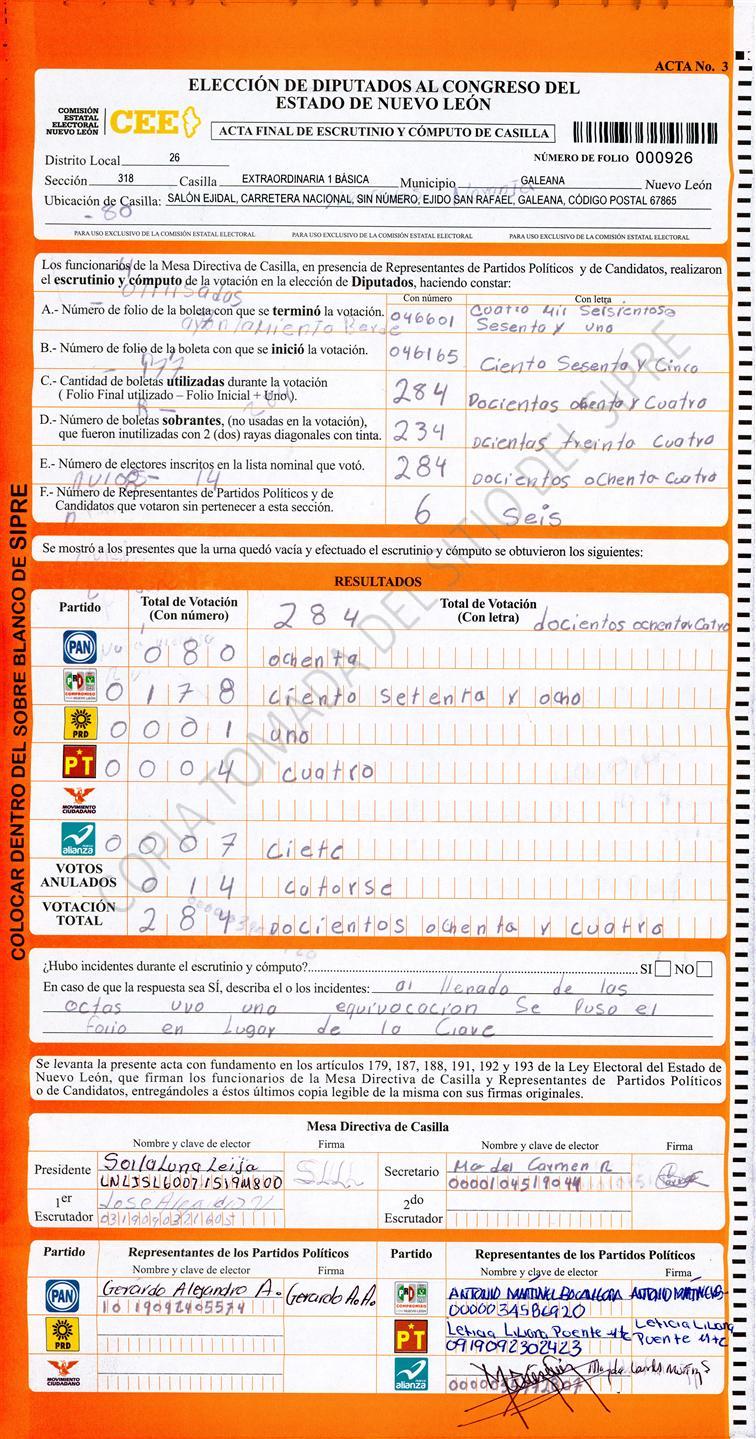 ACTA No. 3
ELECCIÓN DE DIPUTADOS AL CONGRESO DEL
ESTADO DE NUEVO LEÓN
COMISIÓN
ESTATAL
ELECTORAL
NUEVO LEÓN
CEE
ACTA FINAL DE ESCRUTINIO Y CÓMPUTO DE CASILLA
Distrito Local 26
NÚMERO DE FOLIO 000926
Sección 318 Casilla EXTRAORDINARIA 1 BÁSICA Municipio GALEANA Nuevo León
Ubicación de Casilla: SALÓN EJIDAL, CARRETERA NACIONAL, SIN NÚMERO, EJIDO SAN RAFAEL, GALEANA, CÓDIGO POSTAL 67865
- 80
PARA USO EXCLUSIVO DE LA COMISIÓN ESTATAL ELECTORAL PARA USO EXCLUSIVO DE LA COMISIÓN ESTATAL ELECTORAL PARA USO EXCLUSIVO DE LA COMISIÓN ESTATAL ELECTORAL
Los funcionarios de la Mesa Directiva de Casilla, en presencia de Representantes de Partidos Políticos y de Candidatos, realizaron
el escrutinio y cómputo de la votación en la elección de Diputados, haciendo constar:
Con número Con letra
A.- Número de folio de la boleta con que se terminó la votación. 046601 Cuatro Mil Seisientose
Sesenta y uno
B.- Número de folio de la boleta con que se inició la votación. 046165 Ciento Sesenta y Cinco
C.- Cantidad de boletas utilizadas durante la votación
( Folio Final utilizado – Folio Inicial + Uno ). 284 Docientos ochenta y Cuatro
D.- Número de boletas sobrantes, (no usadas en la votación),
que fueron inutilizadas con 2 (dos) rayas diagonales con tinta. 234 Dcientas treinta Cuatro
E.- Número de electores inscritos en la lista nominal que votó. 284 Docientos ochenta Cuatro
F.- Número de Representantes de Partidos Políticos y de
Candidatos que votaron sin pertenecer a esta sección. 6 Seis
Se mostró a los presentes que la urna quedó vacía y efectuado el escrutinio y cómputo se obtuvieron los siguientes:
RESULTADOS
Partido Total de Votación
(Con número) 284 Total de Votación
(Con letra) docientos ochenta y Catro
PAN 080 ochenta
COMPROMISO 0178 ciento setenta y ocho
PRD 0001 uno
PT 0004 cuatro
MOVIMIENTO
CIUDADANO
alianza 0007 ciete
VOTOS
ANULADOS 014 catorse
VOTACIÓN
TOTAL 284 Docientos ochenta y cuatro
¿Hubo incidentes durante el escrutinio y cómputo? SI NO
En caso de que la respuesta sea SÍ, describa el o los incidentes: al llenado de las
actas uvo una equivocacion Se Puso el
folio en Lugar de la Clave
Se levanta la presente acta con fundamento en los artículos 179, 187, 188, 191, 192 y 193 de la Ley Electoral del Estado de
Nuevo León, que firman los funcionarios de la Mesa Directiva de Casilla y Representantes de Partidos Políticos
o de Candidatos, entregándoles a éstos últimos copia legible de la misma con sus firmas originales.
Mesa Directiva de Casilla
Nombre y clave de elector Firma Nombre y clave de elector Firma
Presidente Soila Luna Leija
LNLJSL60071519M800
Secretario Ma del Carmen R
0000104519044
1er
Escrutador
2do
Escrutador
Partido Representantes de los Partidos Políticos Partido Representantes de los Partidos Políticos
Nombre y clave de elector Firma Nombre y clave de elector Firma
PAN Gerardo Alejandro A. Gerardo A.A.
COMPROMISO ANTONIO
PRD
PT Leticia Liliana Puente Leticia Liliana
0919092302423 Puente
MOVIMIENTO
CIUDADANO
alianza
COLOCAR DENTRO DEL SOBRE BLANCO DE SIPRE
COPIA TOMADA DEL SITIO DEL SIPRE